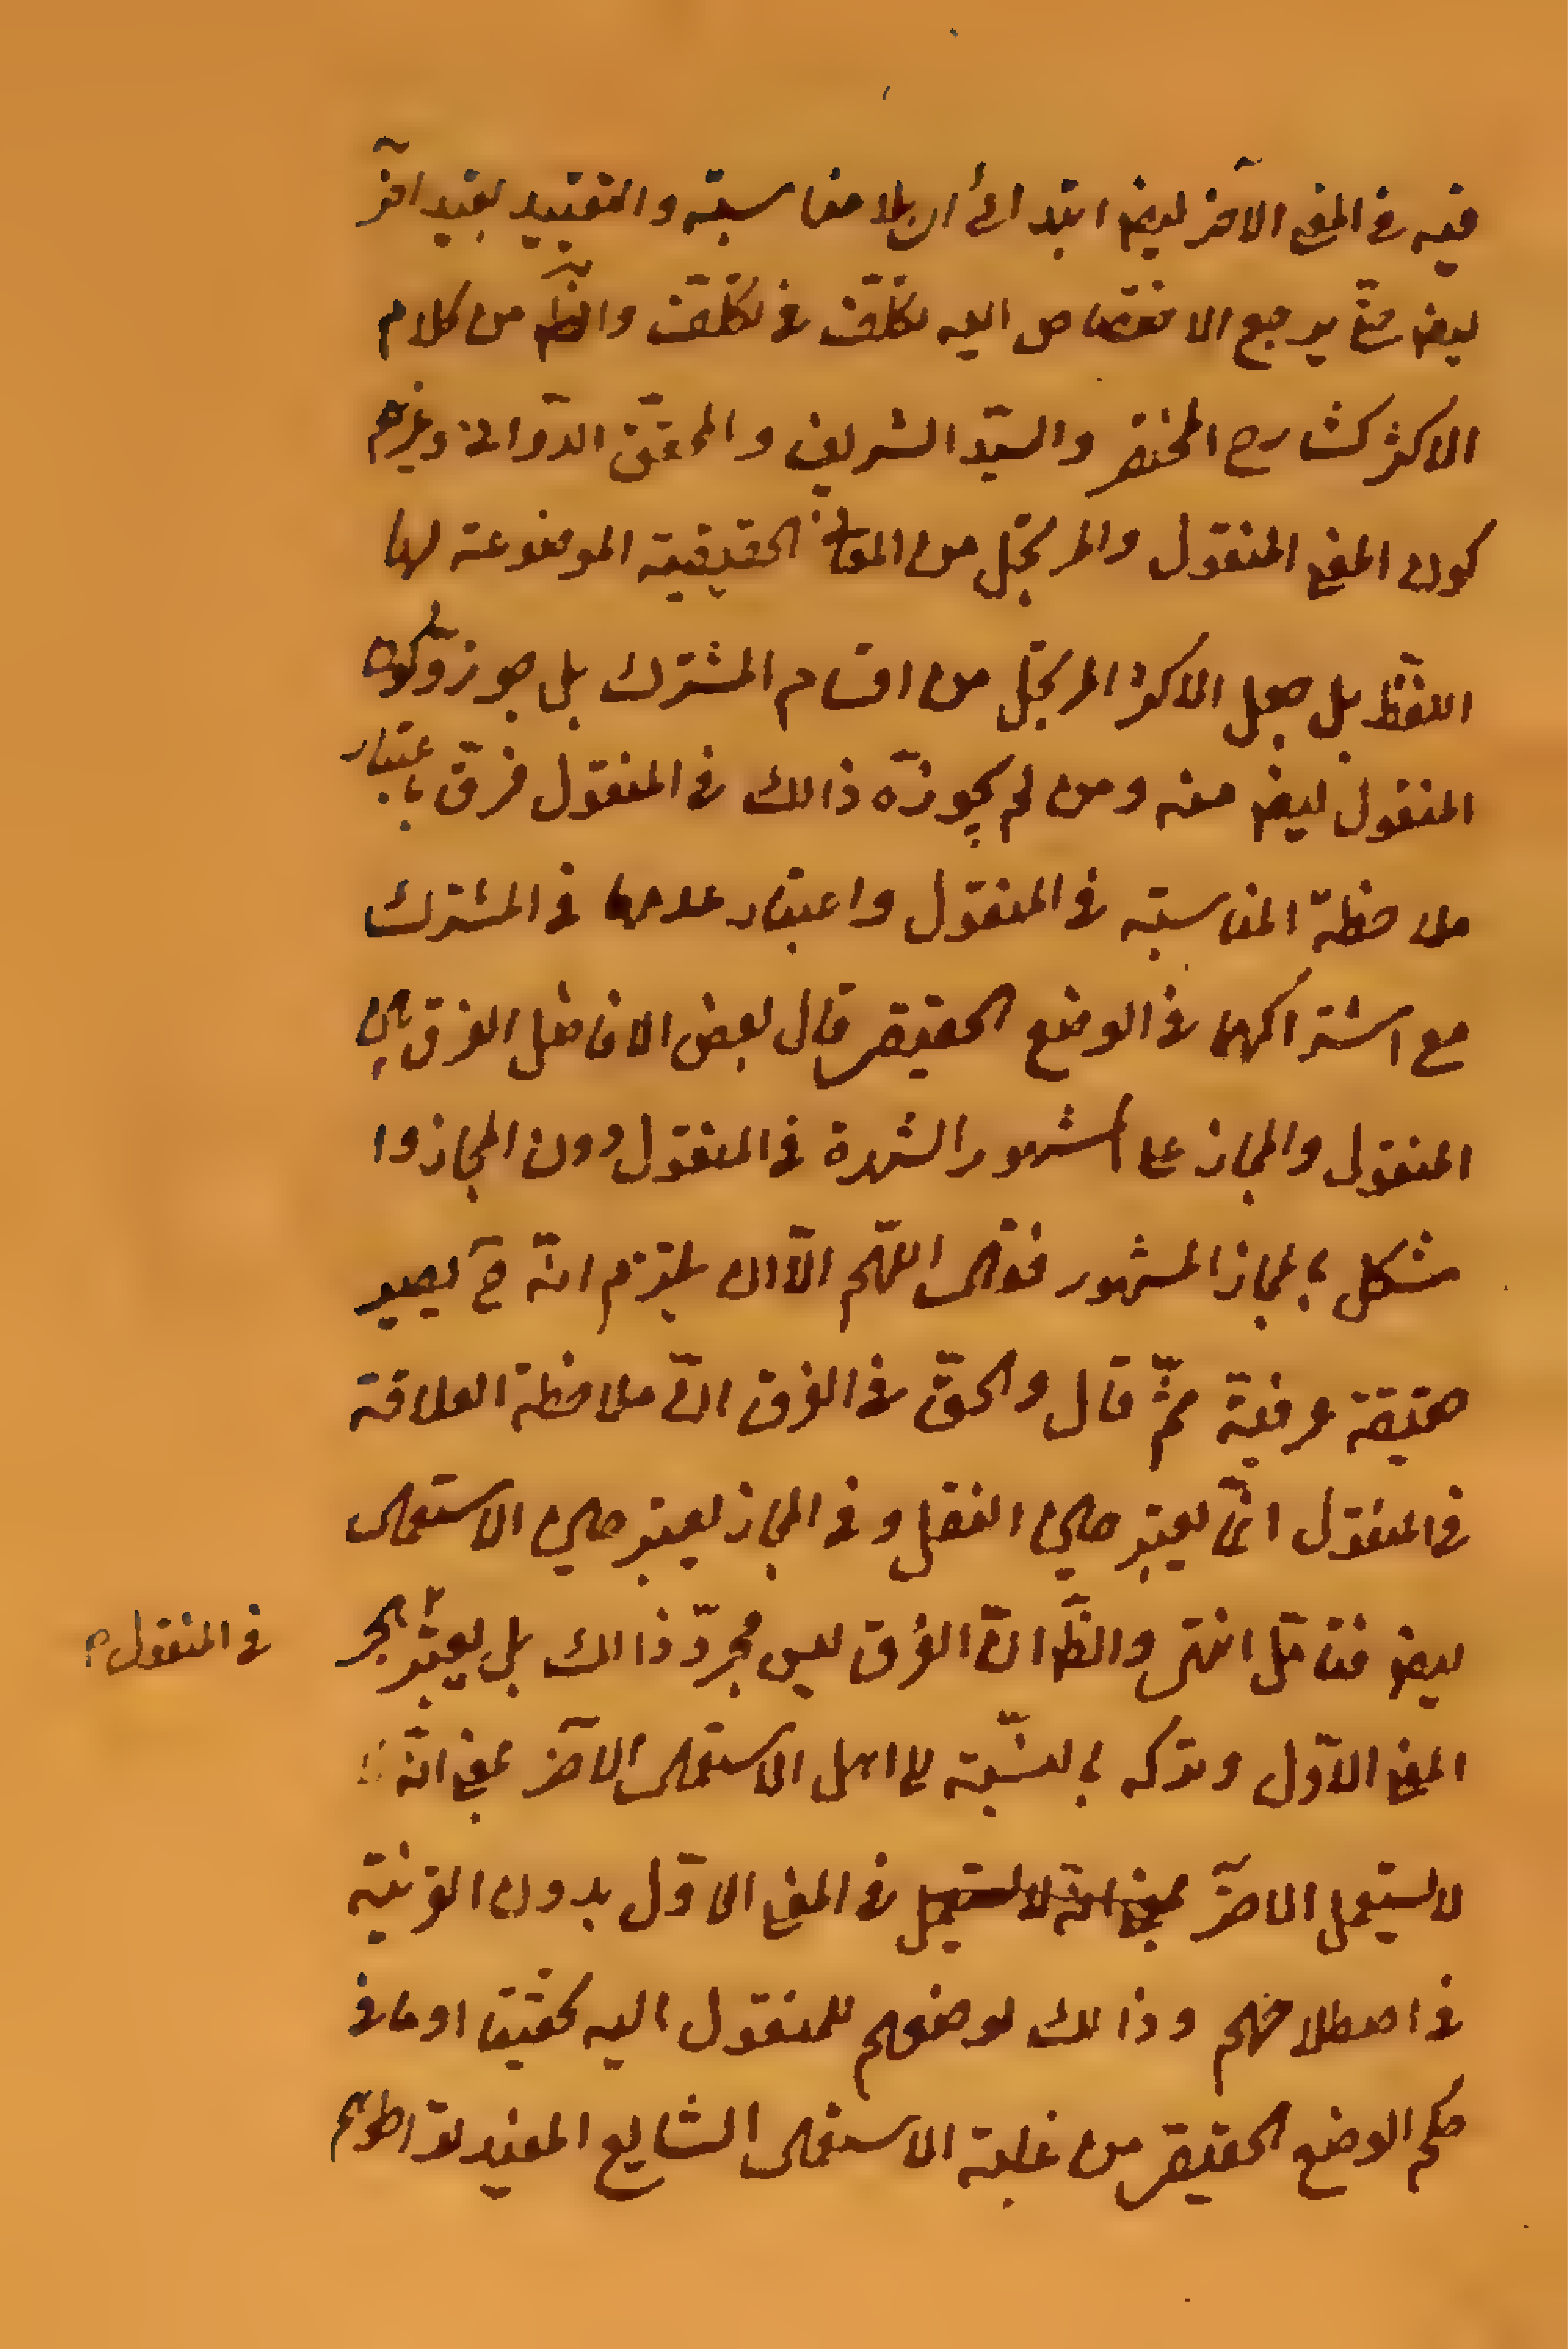 فيه في المعنى الآخر ايضا ابتدائي اي بلا مناسبة والتقييد بقيد آخر
ايضا حتى يرجع الاختصاص اليه تكلّف في تكلّف والظّم من كلام
الاكثر كشارح المختصر والسيّد الشريف والمحقّق الدّواني وغيرهم
كون المعنى المنقول والمرتجل من المعاني الحقيقية الموضوعة لها
اللفظ بل جعل الاكثر المرتجل من اقسام المشترك بل جوّزوا كون
المنقول ايضا منه ومن لم يجوّزه ذالك في المنقول فرق باعتبار
ملاحظة المناسبة في المنقول واعتبار عدمها في المشترك
مع اشتراكهما في الوضع الحقيقي قال بعض الافاضل الفرق بين
المنقول والمجاز على المشهور الشهرة في المنقول دون المجاز وا
مشكل بالمجاز المشهور فتعالى اللّهم الّا ان يلتزم انّه ح يصير
حقيقة عرفيّة ثمّ قال والحقّ في الفرق انّ ملاحظة العلاقة
في المنقول انّما يعتبر حين النقل و في المجاز يعتبر حين الاستعمال
ايضا فتأمّل انتهى والظّ انّ الفرق ليس مجرّد ذالك بل يعتبر هجر
في المنقول
المعنى الاوّل وتركه بالنّسبة الى اهل الاستعمال الآخر بمعنى انّه
لا يستعمل الآخر في المعنى الاوّل بدون القرينة
في اصطلاحهم وذالك لوضعهم للمنقول اليه تحقيقا او ما في
حكم الوضع الحقيقي من غلبة الاستعمال الشايع المفيد لتواطؤهم